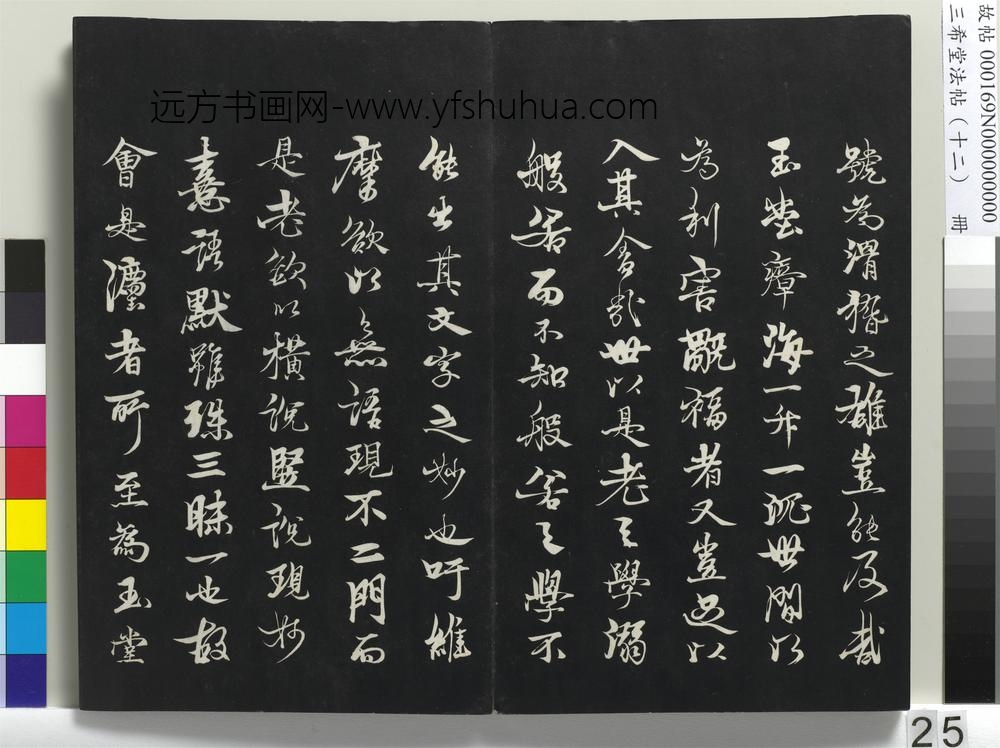 號為渭稽之雄豈能及哉
玉堂瘴海一升一沉世間以
為利害覼福者又豈足以
入其舍哉世以是老之學溺
般若而不知般若之學不
能出其文字之妙也吁維
摩欲以無語現不二門而
是老欲以橫說豎說現妙
意語默雖殊三昧一也故
會是灋者所至為玉堂
远方书画网-www.yfshuhua.com
故帖 000169N000000000
三希堂法帖（十二） 冊
25